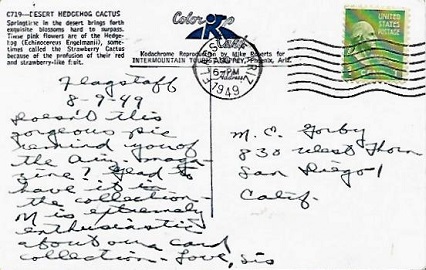 C719—DESERT HEDGEHOG CACTUS
Springtime in the desert brings forth
exquisite blossoms hard to surpass.
These pink flowers are of the Hedge-
hog (Echinocereus Engelmanii), some-
times called the Strawberry Cactus
because of the profusion of their red
and strawberry-like fruit.
Color
Kodachrome Reproduction by Mike Roberts for
INTERMOUNTAIN TOURIST SUPPLY, Phoenix, Ariz.
PM
1949
UNITED STATES
POSTAGE
Flagstaff
8-9-49
Doesn't this
gorgeous pic
remind you of
the Ariz. maga-
zine? Glad to
have it in
the collection-
M is extremely
enthusiastic
about our card
collection- Love, Sis
M. C. Gorby
830 West Thorn
San Diego 1
Calif.